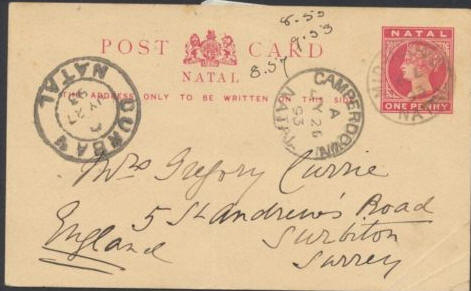 8.53
9.53
8.57
POST CARD
NATAL
THE ADDRESS ONLY TO BE WRITTEN ON THIS SIDE
NATAL
ONE PENNY
DURBAN
NATAL
27
93
CAMPERDOWN
A
26
93
NATAL
Mrs Gregory Currie
5 St Andrew's Road
Surbiton
Surrey
England